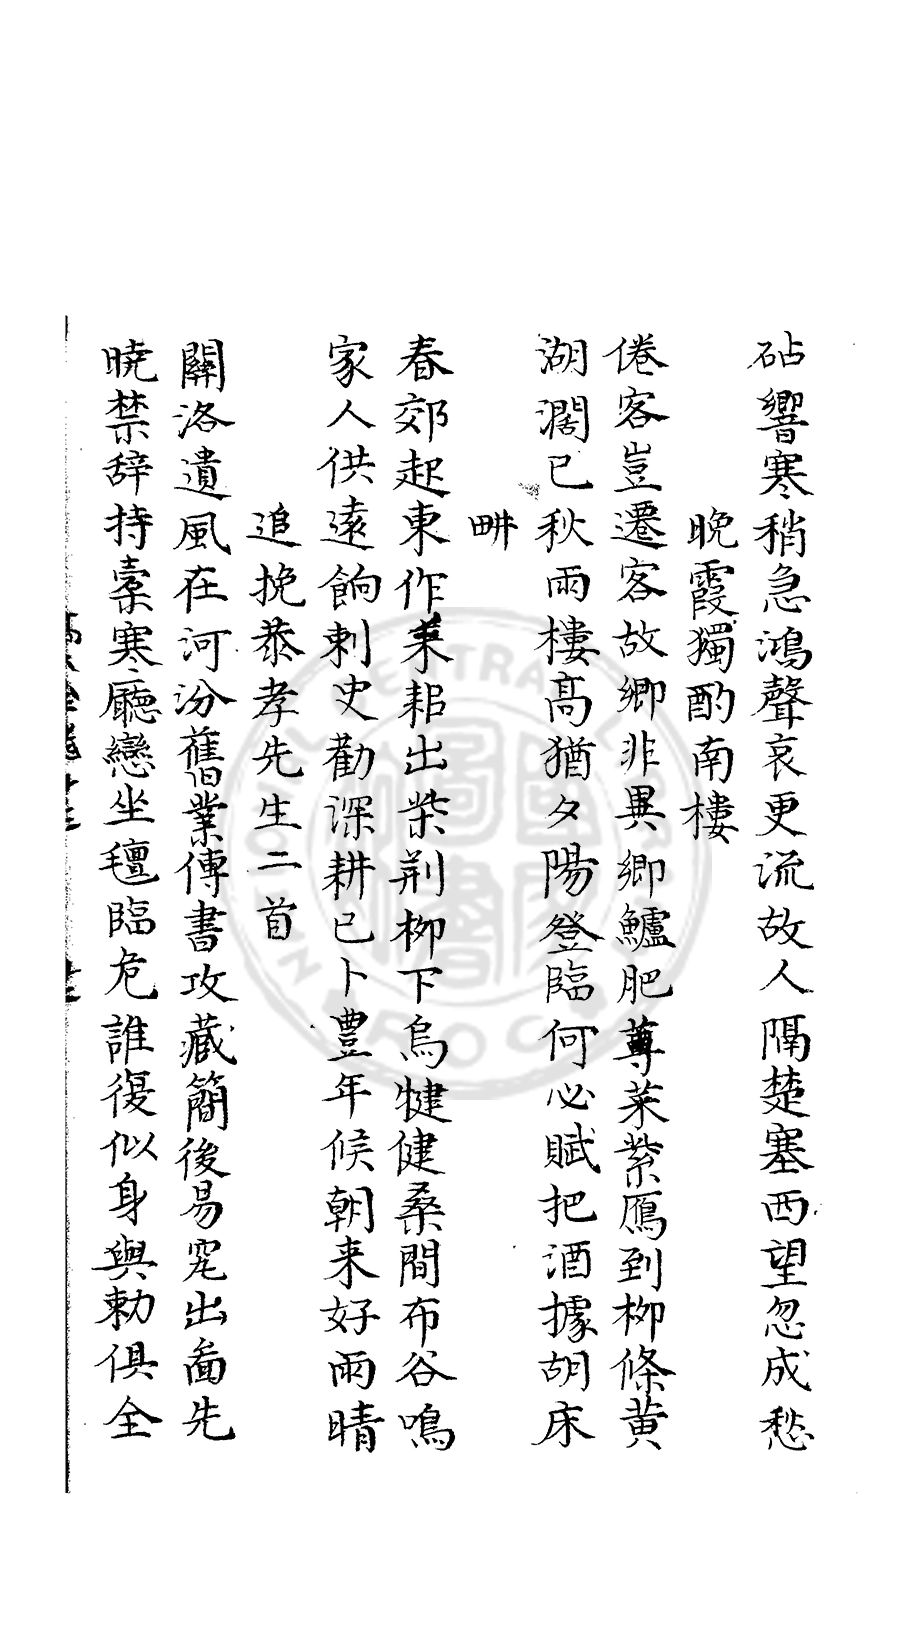 砧響寒稍急鴻聲哀更流故人隔楚塞西望忽成愁
晚霞獨酌南樓
倦客豈遷客故鄉非異鄉鱸肥蓴菜紫鴈到柳條黄
湖濶已秋雨樓髙猶夕陽登臨何必賦把酒據胡床
畊
春郊起東作耒耜出柴荆柳下烏犍健桑間布谷鳴
家人供遠餉刺史勸深耕已卜豊年候朝来好雨晴
追挽恭孝先生二首
關洛遺風在河汾舊業傳書攻藏簡後易究出啚先
曉禁辞持橐寒廳戀坐氊臨危誰復似身與勅俱全